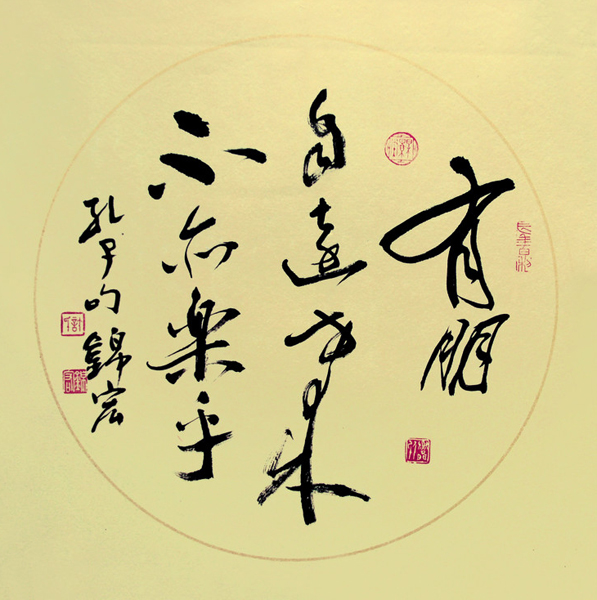 有朋
自遠方来
不亦樂乎
孔子句錦宏